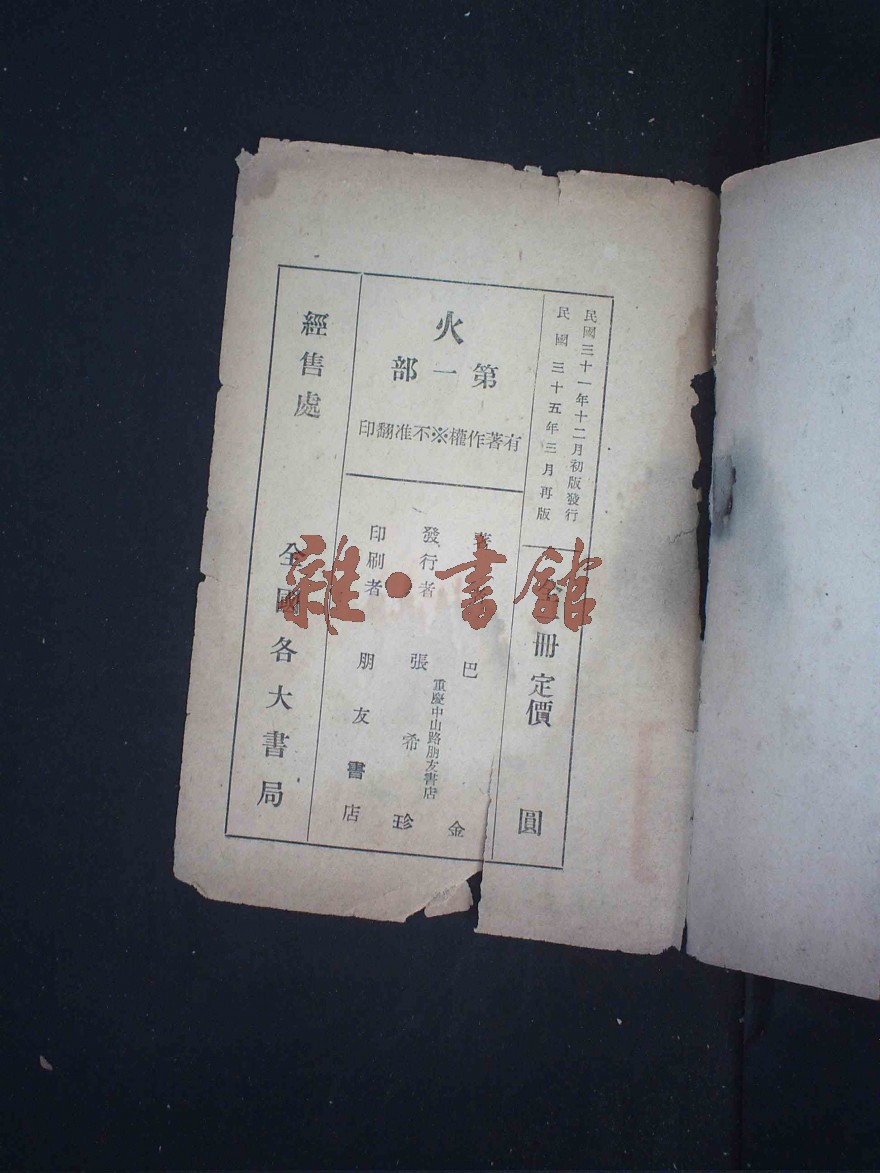 民國三十一年十二月初版發行
民國三十五年三月再版
冊定價 圓
火
第一部
有著作權※不准翻印
巴金
發行者 張希珍
重慶中山路朋友書店
印刷者 朋友書店
經售處 全國各大書局
雜·書館